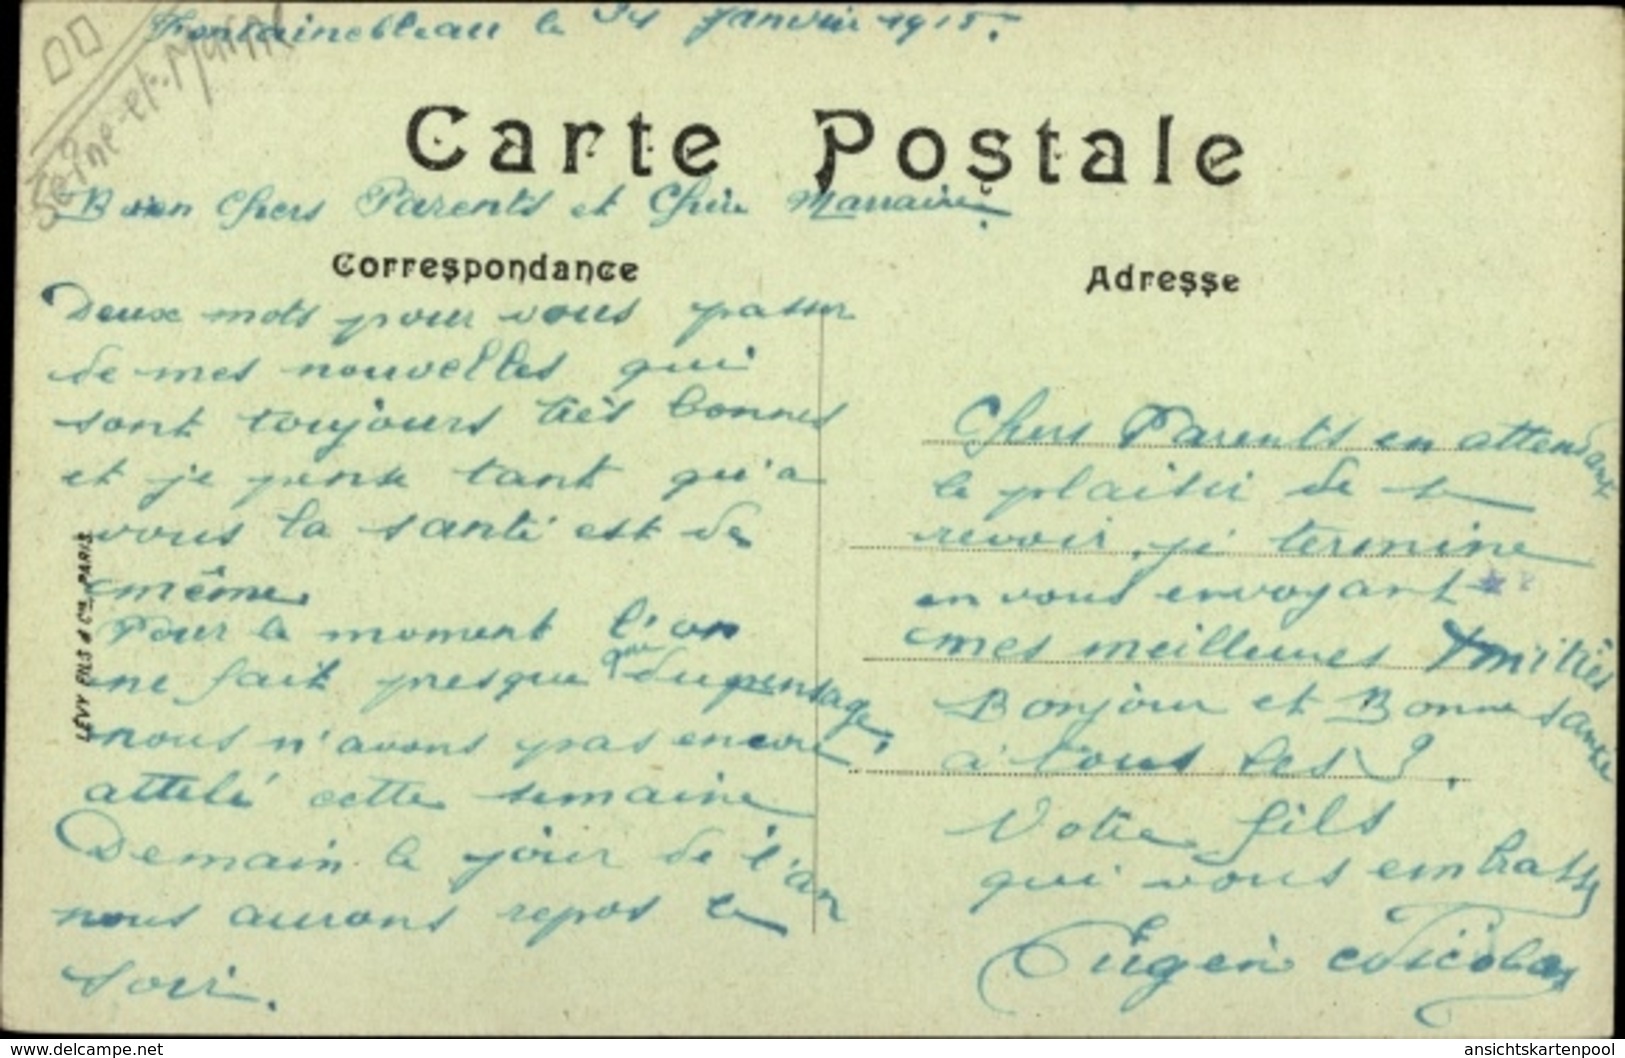 Fontainebleau le 31 janvier 1915.
Seine-et-Marne
Carte Postale
Bien Chers Parents et Chère
Correspondance
Deux mots pour vous passer
de mes nouvelles qui
sont toujours très bonnes
et je pense tant qu'a
vous la santé est de
même.
Pour le moment l'on
ne fait presque que du pansage,
nous n'avons pas encore
attelé cette semaine
Demain le jour de l'an
nous aurons repos le
soir.
LÉVY FILS & Cie PARIS
Adresse
Chers Parents en attendant
le plaisir de se
revoir, je termine
en vous envoyant
mes meilleures Amitiés
Bonjour et Bonne santé
à tous les 3.
Votre fils
qui vous embrasse
Eugène Nicolas
www.delcampe.net
ansichtskartenpool